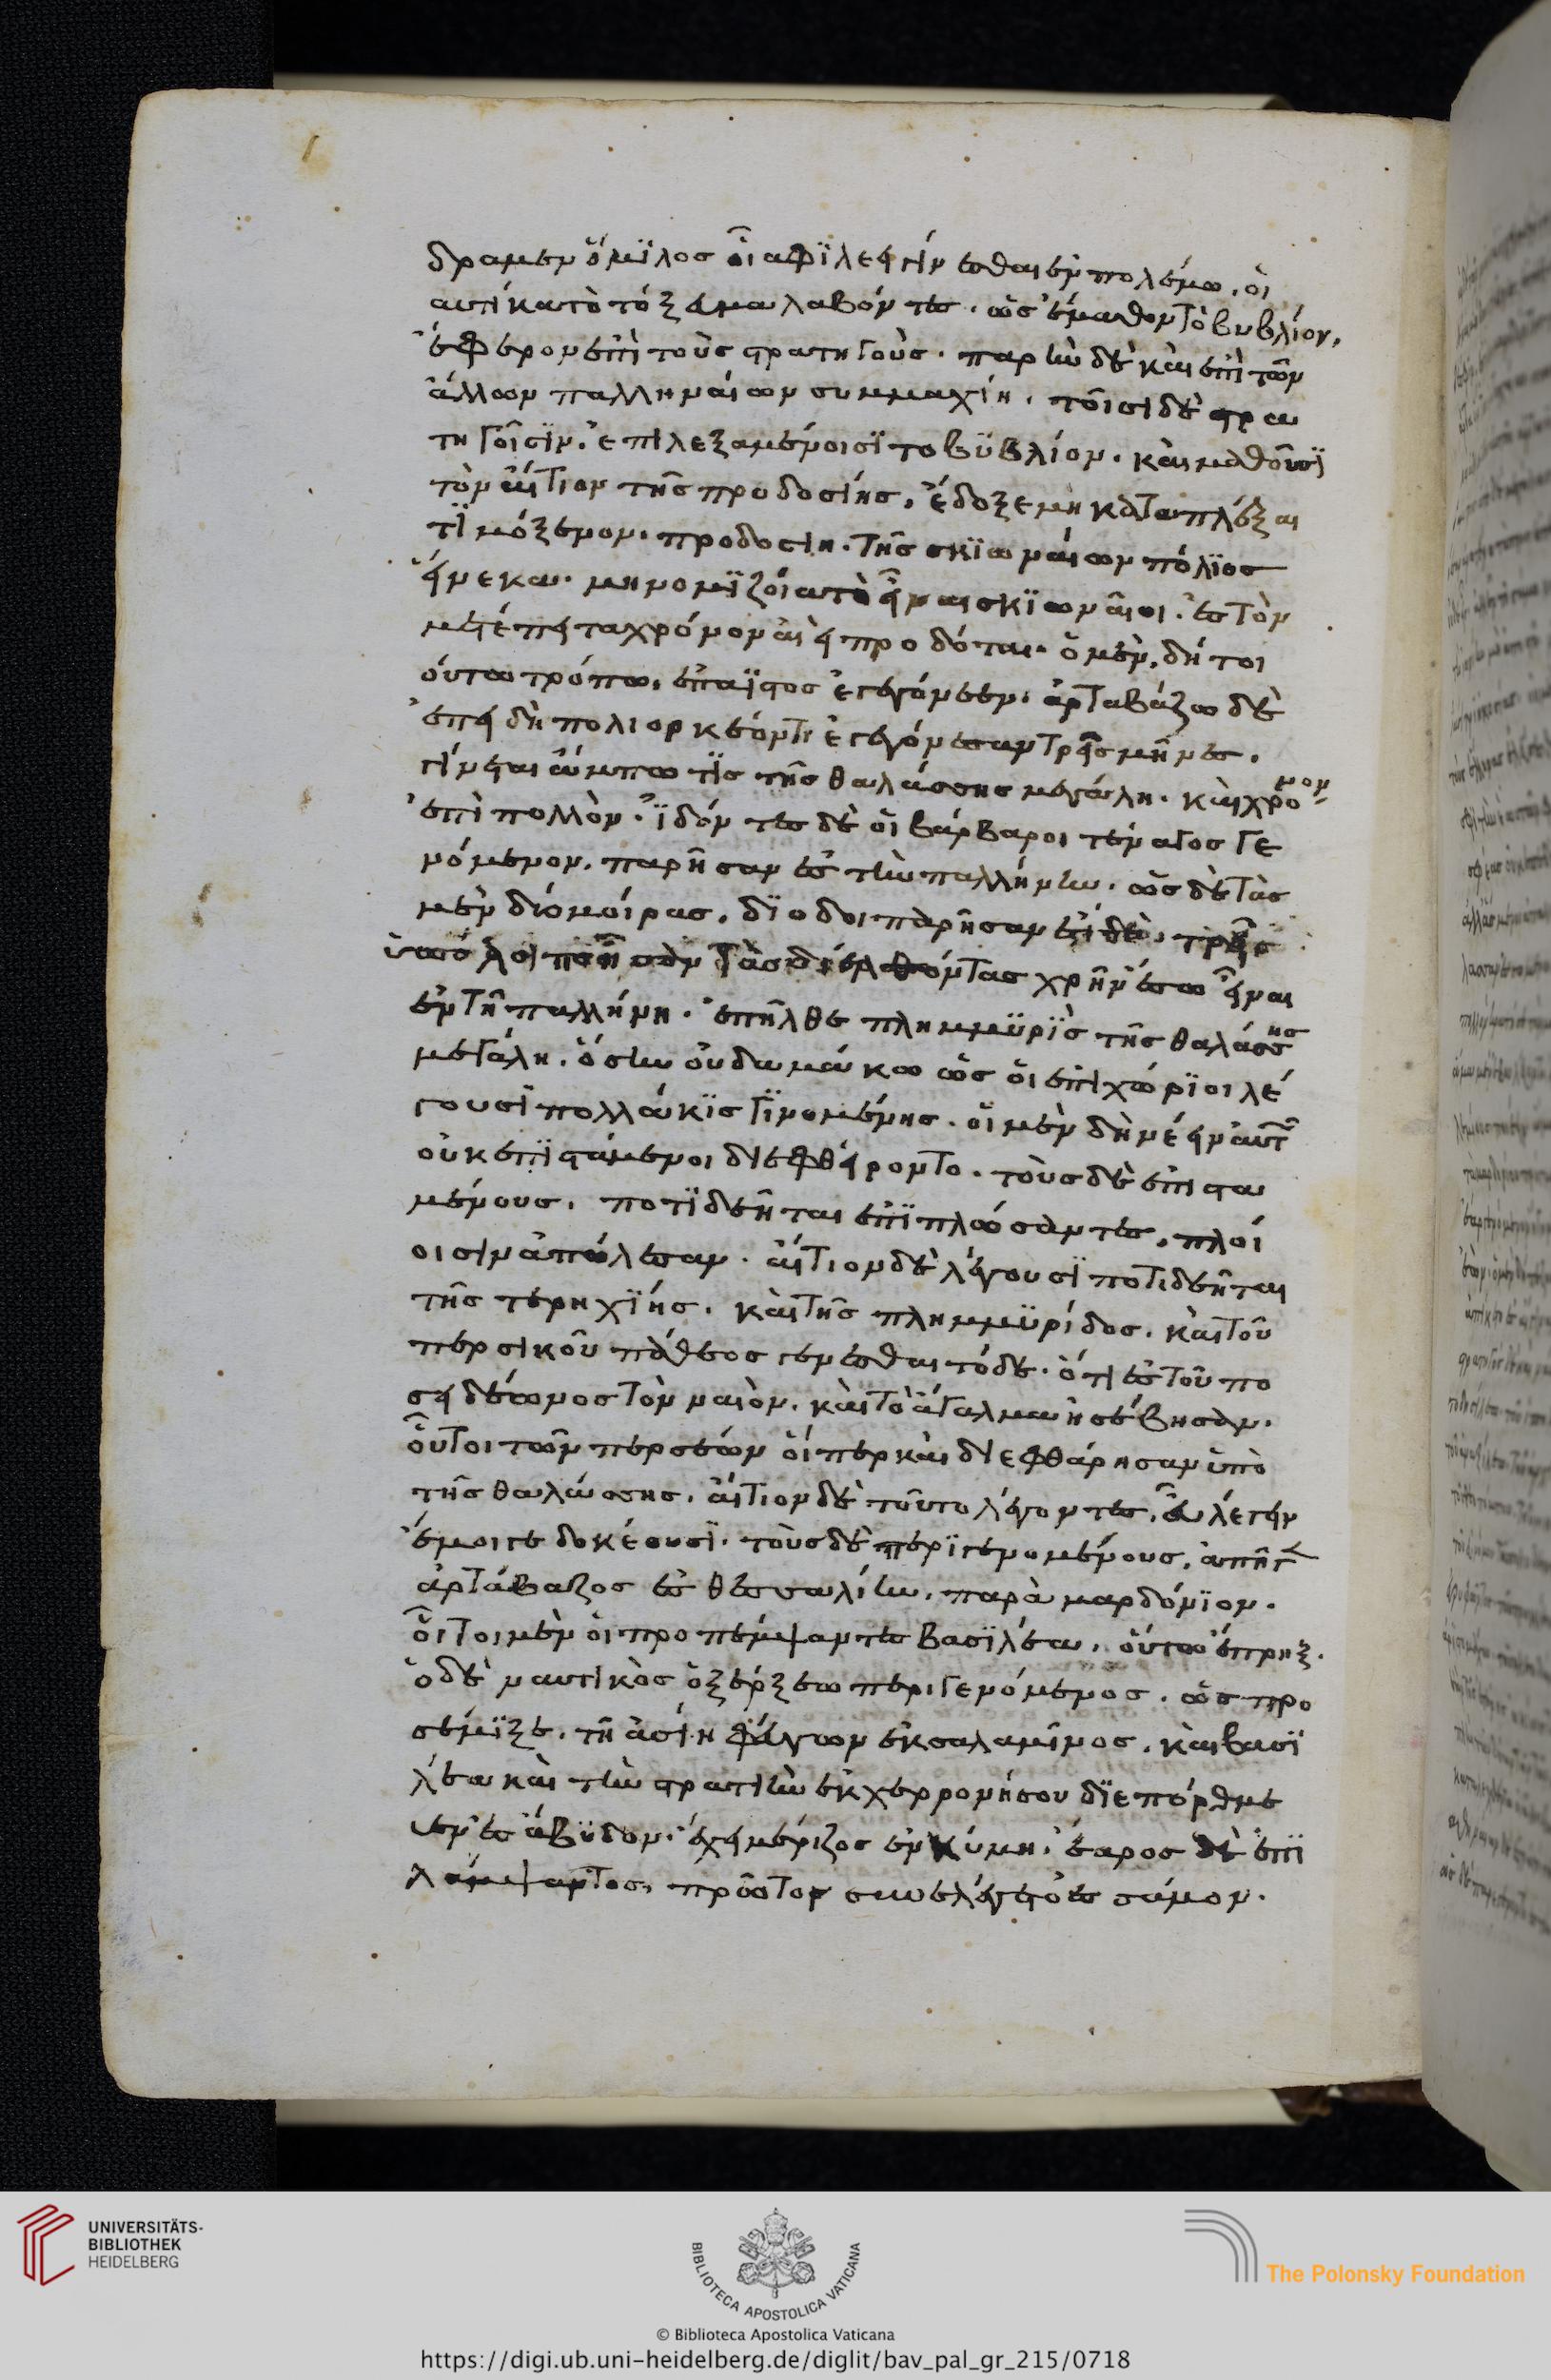 δραμεν ὅμϊλος οἷα φϊλέει γίνεσθαι ἐν πολέμω. οἳ
αυτίκα τὸ τόξευμα λαβόντες. ὡς ἔμαθον τὸ βυβλίον,
ἔφερον ἐπὶ τοὺς στρατηγοὺς. παρῆν δὲ καὶ ἐπὶ τῶν
ἄλλων παλληναίων συμμαχίη. τοῖσι δὲ στρα
τηγοῖσϊν. ἐπιλεξαμένοισϊ το βϋβλίον. καὶ μαθοῦσϊ
τὸν αἴτιον τῆς προδοσίης, ἔδοξε μὴ καταπλέξαι
τϊμόξενον. προδοσίη. τῆς σκϊωναίων πόλϊος
εἵνεκα. μὴ νομϊζοίατο εἶναι σκϊωναῖοι. ἐς τὸν
μετέπειτα χρόνον αἰεὶ προδόται. ὁ μὲν, δή τοι
ούτω τρόπω, ἐπάϊστος ἐγεγόνεεν. ἀρταβάζω δὲ
ἐπειδὴ πολιορκέοντι ἐγεγόνεσαν τρεῖς μῆνες.
γίνεται ἄμπωτϊς τῆς θαλάσσης μεγάλη. καὶ χρόνον
ἐπὶ πολλὸν. ἰδόντες δὲ οἱ βάρβαροι τέναγος γε
νόμενον. παρῆσαν ἐς τὴν παλλήνην. ὡς δὲ τὰς
μὲν δύο μοίρας, δϊοδοιπαρῆσαν ἔτι δὲ, τρεῖς
ὑπόλοιποι ἦσαν τὰς διελθόντας χρῆν ἔσω εἶναι
ἐν τῆ παλλήνη. ἐπῆλθε πλημμϋρὶς τῆς θαλάσσης
μεγάλη. ὅση οὐδαμά κω ὡς οἱ ἐπιχώρϊοι λέ
γουσϊ πολλάκϊς γϊνομένης. οἱ μὲν δὴ νέειν αὐτῶν
οὐκ ἐπϊστάμενοι διεφθείροντο. τοὺς δὲ ἐπιστα
μένους, ποτϊδεῆται ἐπϊπλώσαντες, πλοί
οισιν ἀπώλεσαν. αἴτιον δὲ λέγουσϊ ποτιδεῆται
τῆς τε ρηχϊης. καὶ τῆς πλημμϋρίδος. καὶ τοῦ
περσικοῦ πάθεος γενέσθαι τόδε. ὅτι ἐς τοῦ πο
σειδέωνος τὸν ναιὸν. καὶ τὸ ἄγαλμα ἠσέβησαν.
οὗτοι τῶν περσέων οἵπερ καὶ διεφθάρησαν ὑπὸ
τῆς θαλάσσης. αἴτιον δὲ τοῦτο λέγοντες, εὖ λέγειν
ἔμοιγε δοκέουσϊ. τοὺς δὲ περϊγενομένους, ἀπῆγε
ἀρτάβαζος ἐς θεσσαλίην. παρὰ μαρδόνϊον.
οὗτοι μὲν οἱ προπέμψαντες βασϊλέα, οὕτω ἔπρηξ.
ὁ δὲ ναυτικὸς ὁ ξέρξεω περιγενόμενος. ὡς προ
σέμϊξε. τῆ ἀσίη φεύγων ἐκ σαλαμῖνος. καὶ βασϊ
λέα καὶ τὴν στρατιὴν ἐκ χερρονήσου δϊεπόρθμε
υσεν ἐς ἄβϋδον. ἐχειμέριζος ἐν κύμη. ἔαρος δὲ ἐπϊ
λάμψαντος, πρῶτος συνελέγετο ἐς σάμον.
UNIVERSITÄTS-
BIBLIOTHEK
HEIDELBERG
BIBLIOTECA APOSTOLICA VATICANA
The Polonsky Foundation
© Biblioteca Apostolica Vaticana
https://digi.ub.uni-heidelberg.de/diglit/bav_pal_gr_215/0718